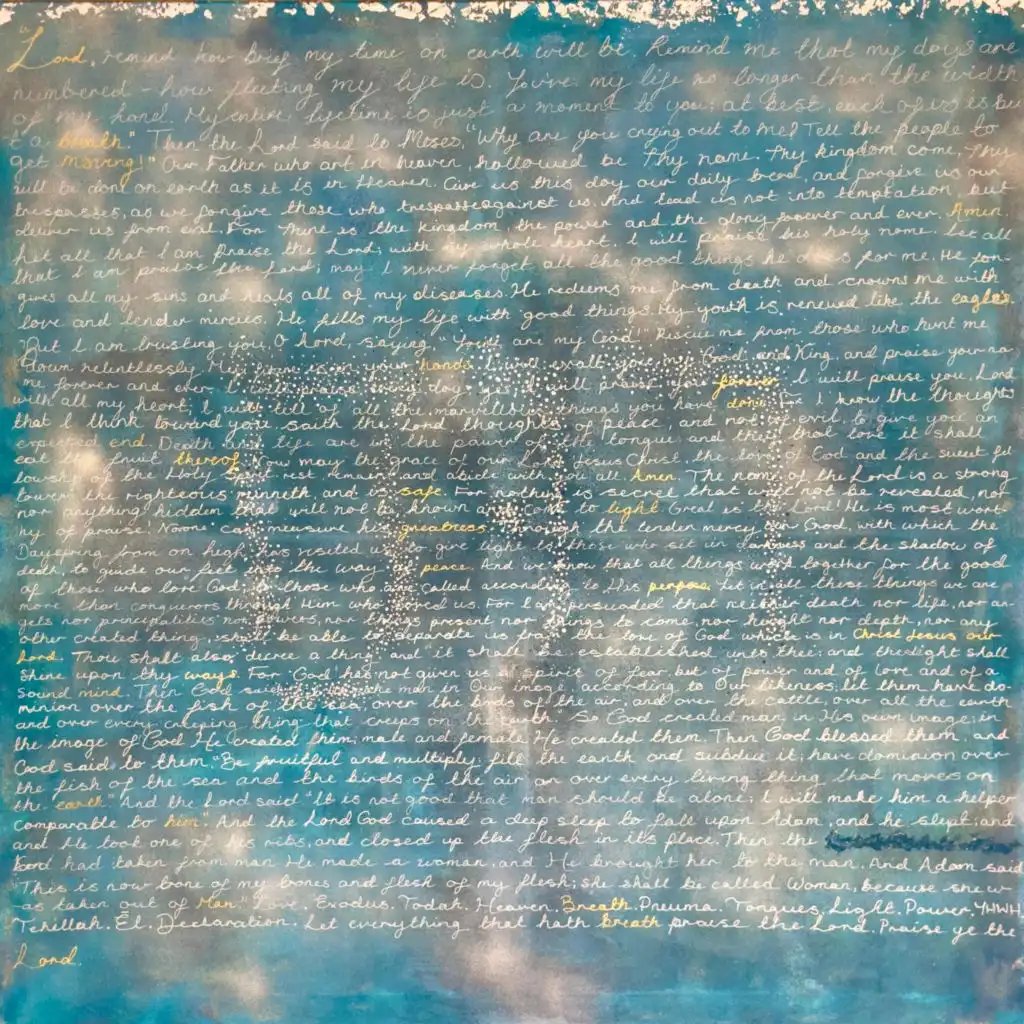 "Lord, remind how brief my time on earth will be. Remind me that my days are
numbered - how fleeting my life is. You've my life no longer than the width
of my hand. My entire lifetime is just a moment to you; at best each of us is bu
t a breath." Then the Lord said to Moses, "Why are you crying out to me? Tell the people to
get moving!" Our Father who art in heaven, hallowed be Thy name. Thy kingdom come, Thy
will be done on earth as it is in Heaven. Give us this day our daily bread, and forgive us our
trespasses, as we forgive those who trespass against us. And lead us not into temptation, but
deliver us from evil. For Thine is the kingdom, the power and the glory forever and ever. Amen.
Let all that I am praise the Lord; with my whole heart, I will praise his holy name. Let all
that I am praise the Lord; may I never forget all the good things he does for me. He for-
gives all my sins and heals all of my diseases. He redeems me from death and crowns me with
love and tender mercies. He fills my life with good things. My youth is renewed like the eagles.
But I am trusting you, O Lord, saying, "You are my God!" Rescue me from those who hunt me
down relentlessly. My in your hands. I will exalt you, my God and King, and praise your na
me forever and ever. I will praise every day; yes, I will praise you forever. I will praise you, Lord
with all my heart; I will tell of all the marvellous things you have done. For I know the thoughts
that I think toward you, saith the Lord, thoughts of peace and not of evil, to give you an
expected end. Death and life are in the power of the tongue and they that love it shall
eat the fruit thereof. Now may the grace of our Lord Jesus Christ, the love of God and the sweet fel
lowship of the Holy rest remain and abide with us all Amen. The name of the Lord is a strong
tower, the righteous runneth and is safe. For nothing is secret that will not be revealed, nor
nor anything hidden that will not be known and come to light. Great is the Lord! He is most wort
hy of praise! No one can measure his greatness. Through the tender mercy of our God, with which the
Dayspring from on high has visited us; to give light to those who sit in darkness and the shadow of
death, to guide our feet into the way of peace. And we know that all things work together for the good
of those who love God, to those who are called according to His purpose. Yet in all these things we are
more than conquerors through Him who loved us. For I am persuaded that neither death nor life, nor an
gels nor principalities nor powers, nor things present nor things to come, nor height nor depth, nor any
other created thing, shall be able to separate us from the love of God which is in Christ Jesus our
Lord. Thou shalt also decree a thing and it shall be established unto thee: and the light shall
shine upon thy ways. For God has not given us a spirit of fear, but of power and of love and of a
sound mind. Then God said, the man in Our image, according to Our likeness; let them have do-
minion over the fish of the sea, over the birds of the air, and over the cattle, over all the earth
and over every creeping thing that creeps on the earth. So God created man in His own image; in
the image of God He created them; male and female He created them. Then God blessed them, and
God said to them, "Be fruitful and multiply; fill the earth and subdue it; have dominion over
the fish of the sea and the birds of the air an over every living thing that moves on
the earth." And the Lord said "It is not good that man should be alone; I will make him a helper
comparable to him." And the Lord God caused a deep sleep to fall upon Adam, and he slept; and
and He took one of his ribs, and closed up the flesh in it's place. Then the
Lord had taken from man He made a woman, and He brought her to the man. And Adam said
"This is now bone of my bones and flesh of my flesh; she shall be called Woman, because she w
as taken out of Man." Love. Exodus. Todah. Heaven. Breath. Pneuma. Tongues. Light. Power. YHWH.
Tehillah. Ēl. Declaration. Let everything that hath breath praise the Lord. Praise ye the
Lord.